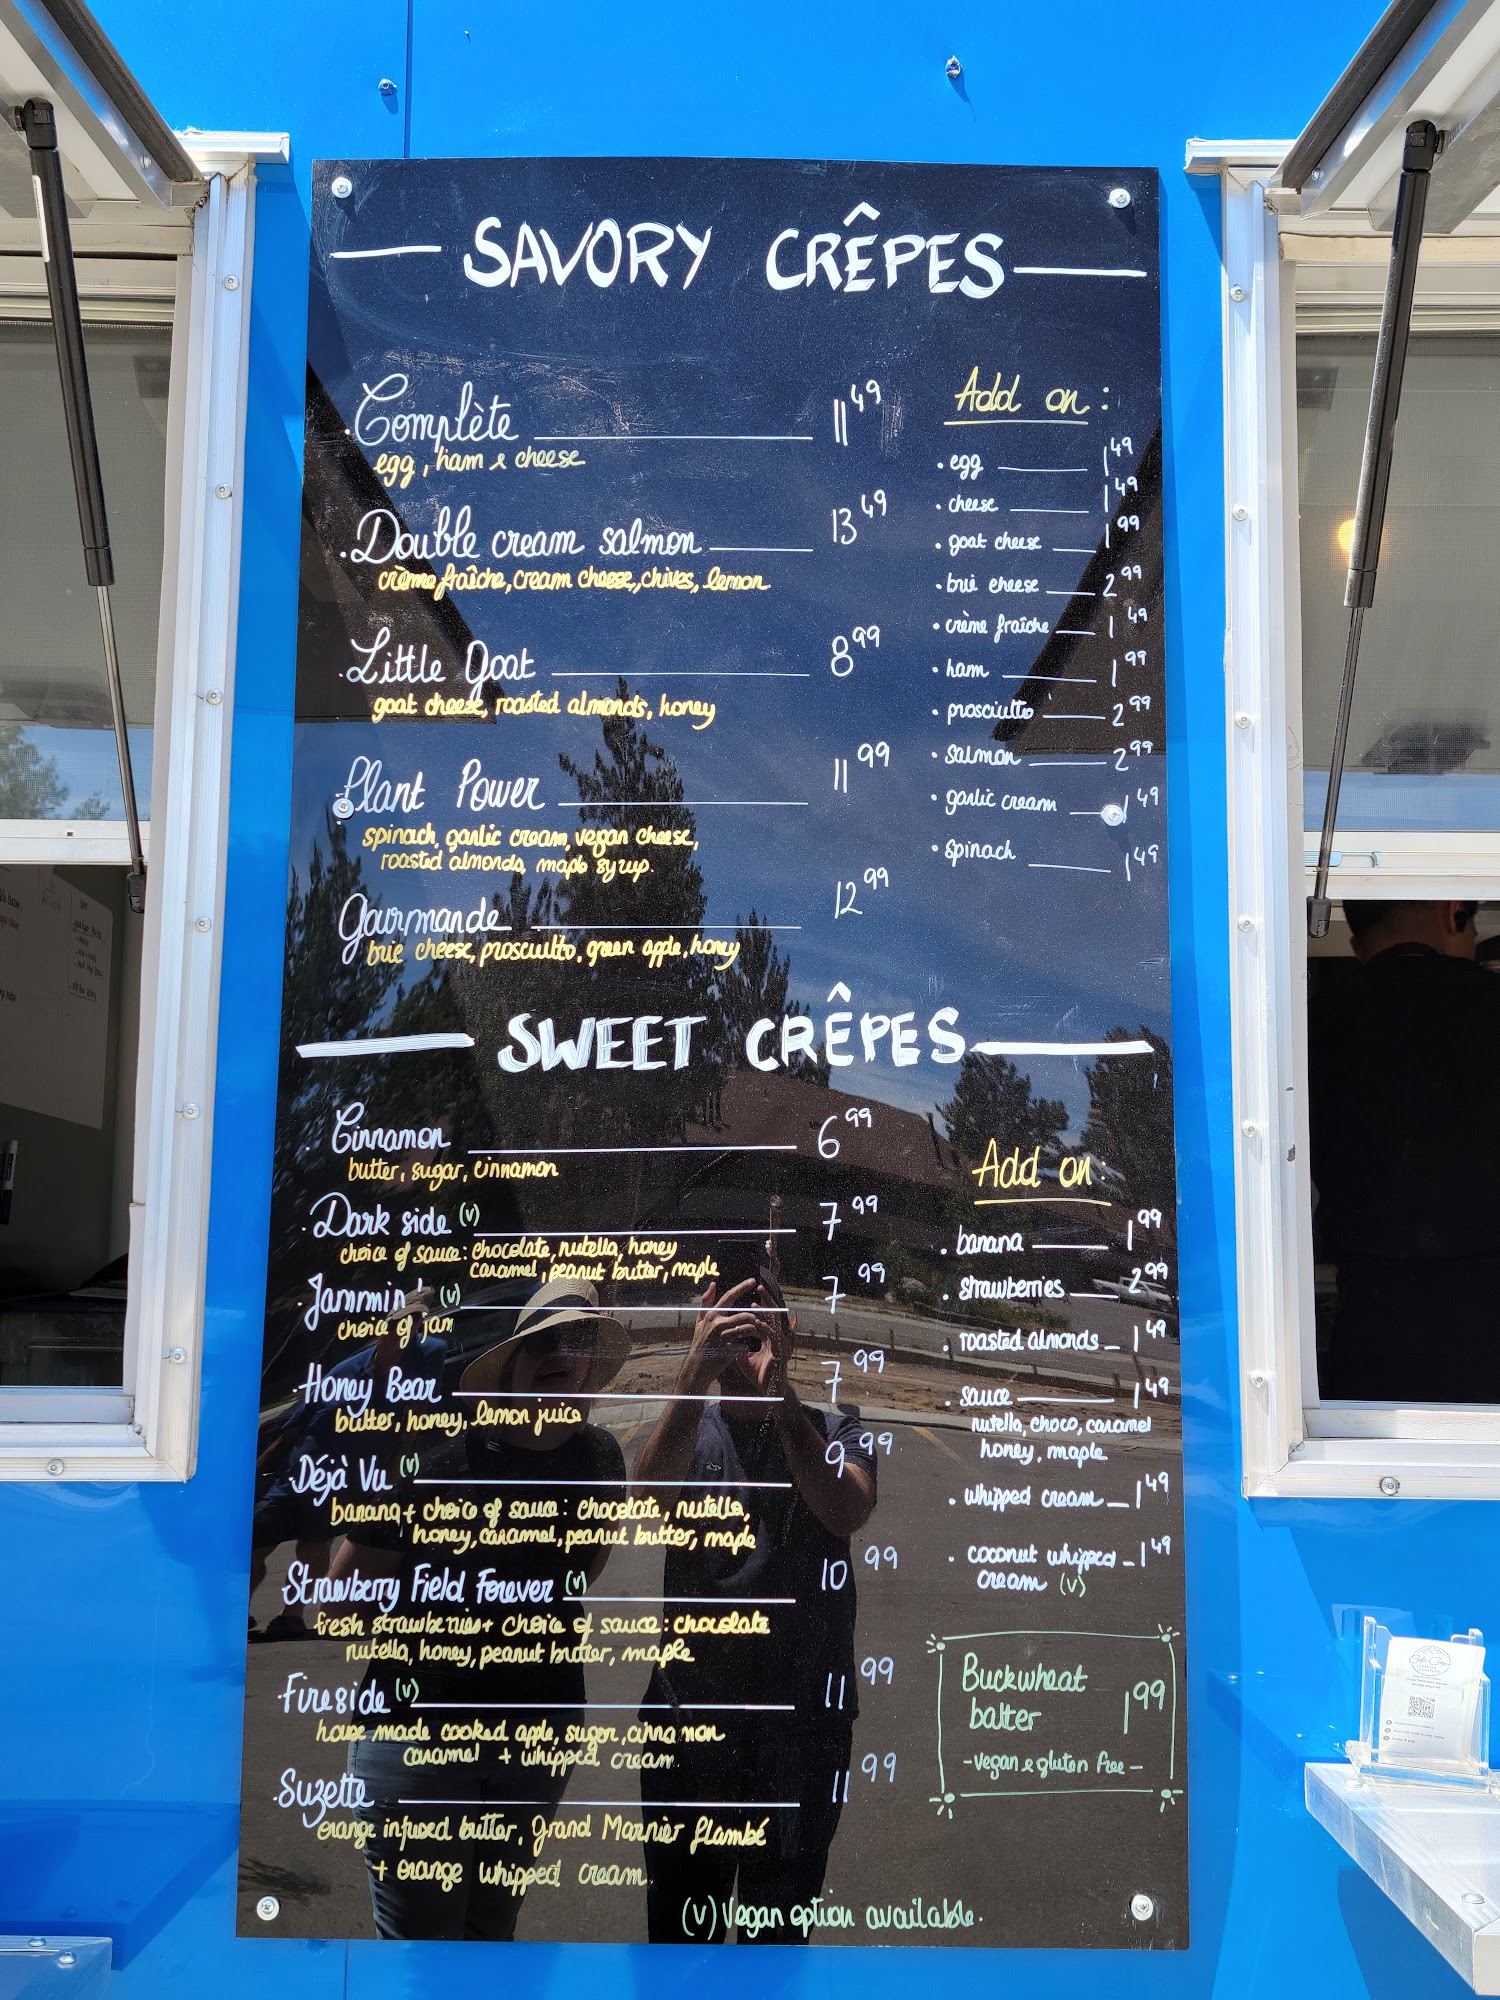 SAVORY CRÊPES
Complète 11 49
egg, ham & cheese
Double cream salmon 13 49
crème fraîche, cream cheese, chives, lemon
Little Goat 8 99
goat cheese, roasted almonds, honey
Plant Power 11 99
spinach, garlic cream, vegan cheese,
roasted almonds, maple syrup.
Gourmande 12 99
brie cheese, prosciutto, green apple, honey
Add on:
• egg 1 49
• cheese 1 49
• goat cheese 1 99
• brie cheese 2 99
• crème fraîche 1 49
• ham 1 99
• prosciutto 2 99
• salmon 2 99
• garlic cream 1 49
• spinach 1 49
SWEET CRÊPES
Cinnamon 6 99
butter, sugar, cinnamon
Dark side (v) 7 99
choice of sauce: chocolate, nutella, honey
caramel, peanut butter, maple
Jammin' (v) 7 99
choice of jam
Honey Bear 7 99
butter, honey, lemon juice
Déjà Vu (v) 9 99
banana + choice of sauce: chocolate, nutella,
honey, caramel, peanut butter, maple
Strawberry Field Forever (v) 10 99
fresh strawberries + choice of sauce: chocolate
nutella, honey, peanut butter, maple
Fireside (v) 11 99
house made cooked apple, sugar, cinnamon
caramel + whipped cream
Suzette 11 99
orange infused butter, Grand Marnier flambé
+ orange whipped cream.
Add on:
• banana 1 99
• strawberries 2 99
• roasted almonds 1 49
• sauce 1 49
nutella, choco, caramel
honey, maple
• whipped cream 1 49
• coconut whipped 1 49
cream (v)
Buckwheat
batter 1 99
- vegan & gluten free -
(v) Vegan option available.